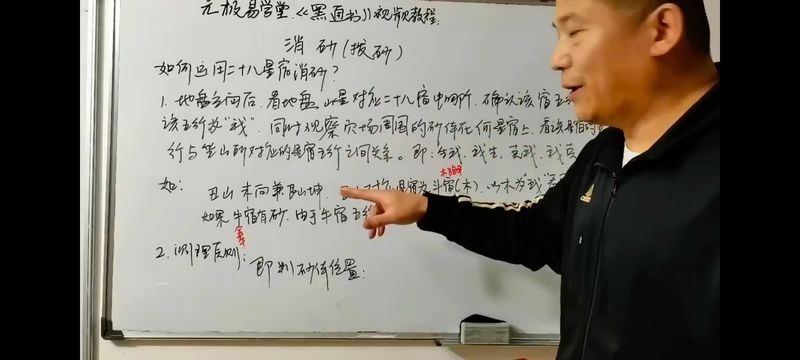 元极易学堂.《黑通书》视频教程:
消砂(拨砂)
如何运用二十八星宿消砂?
1. 地盘立向后, 看地盘坐星对应二十八宿中哪所, 确认该宿五
该五行为"我", 同时观察穴场周围的砂体在何星宿上, 看该星宿的
行与坐山所对应的星宿五行之间关系。即:生我、我生、克我、我克
木
如: 丑山未向兼艮坤, 星宿为斗宿(木), 以木为"我"
如果牛宿有砂, 由于牛宿五行
2. 原则:
即判砂体位置: